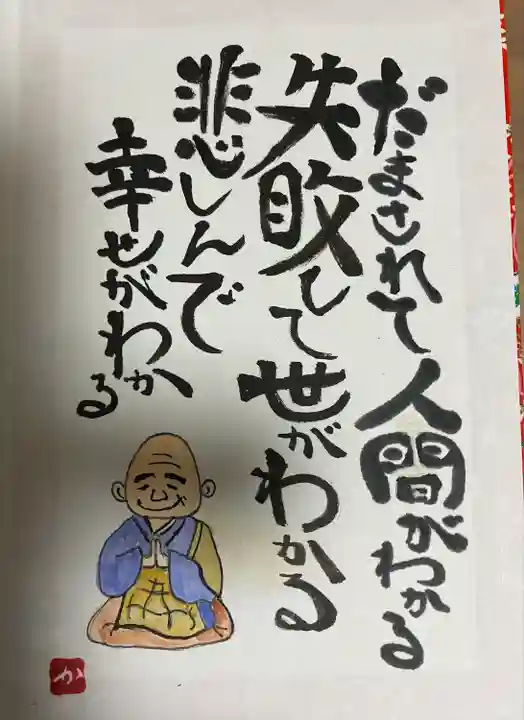 だまされて人間がわかる
失敗して世がわかる
悲しんで
幸せがわかる
か